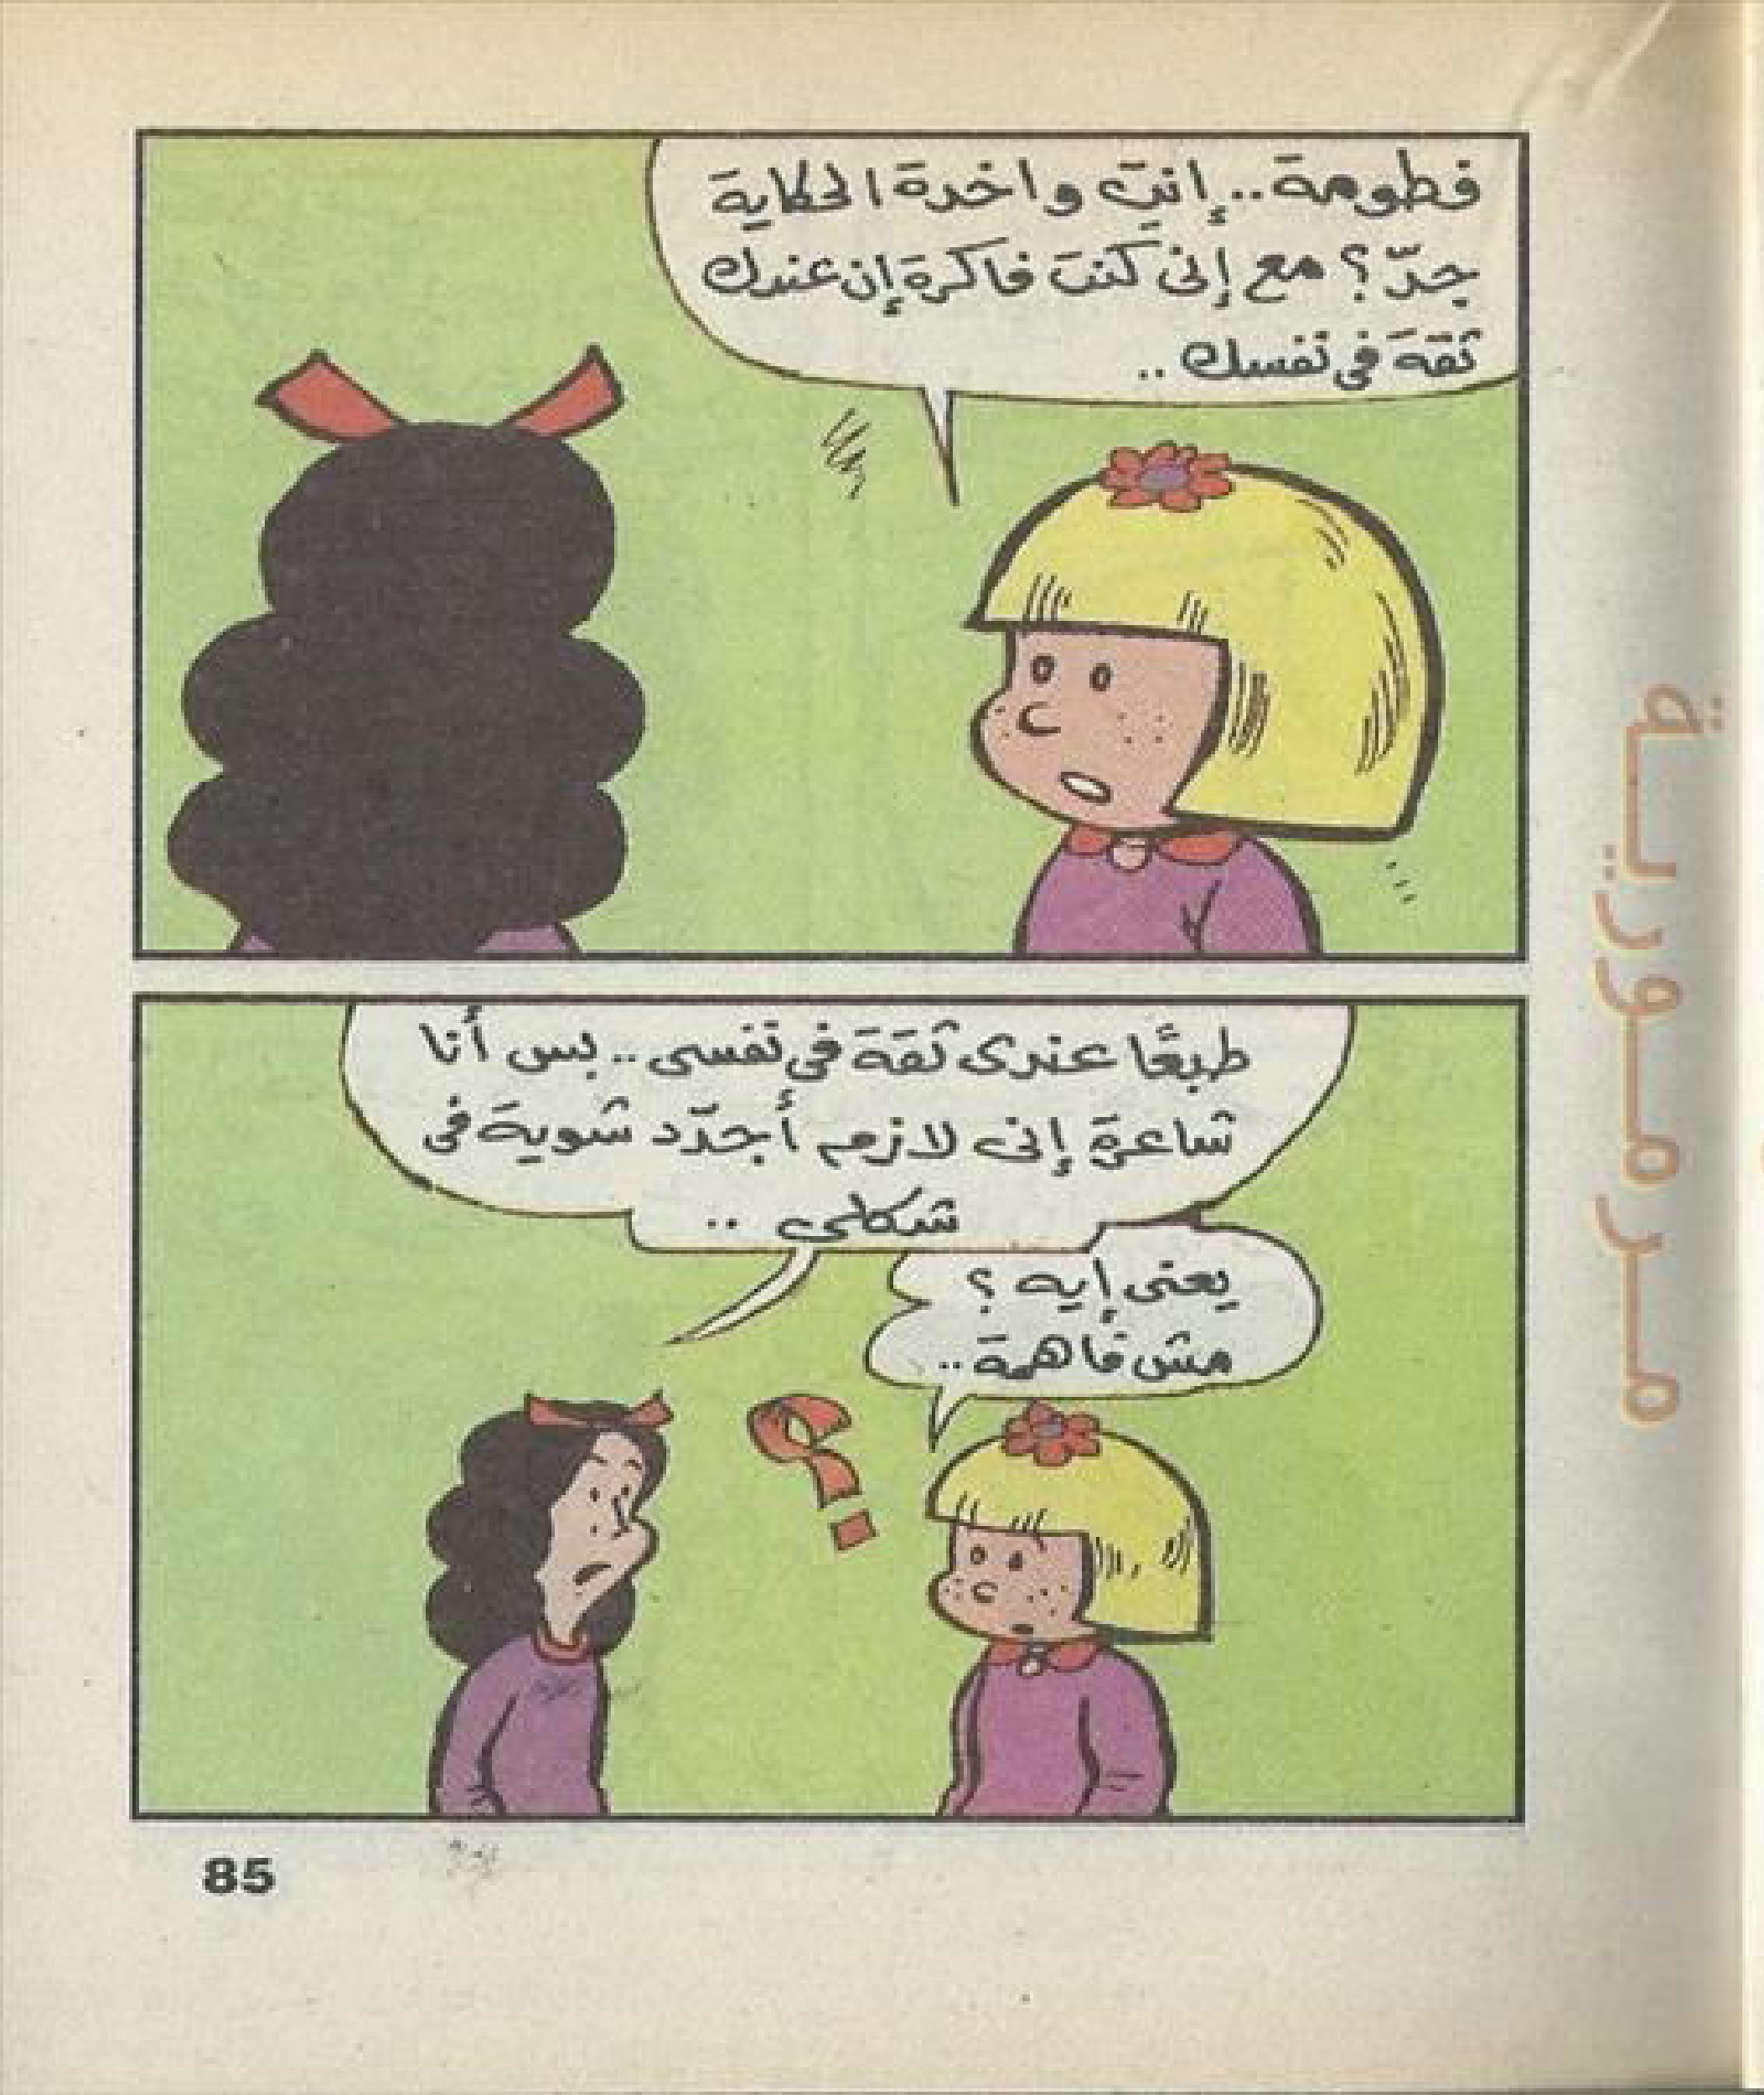 فطومة.. إنتِ واخدة الحكاية
جدّ؟ مع إنى كنت فاكرة إن عندك
ثقة فى نفسك..
طبعًا عندى ثقة فى نفسى.. بس أنا
شاعرة إنى لازم أجدّد شوية فى
شكلى..
يعنى إيه؟
مش فاهمة..
؟
مرمورية
85